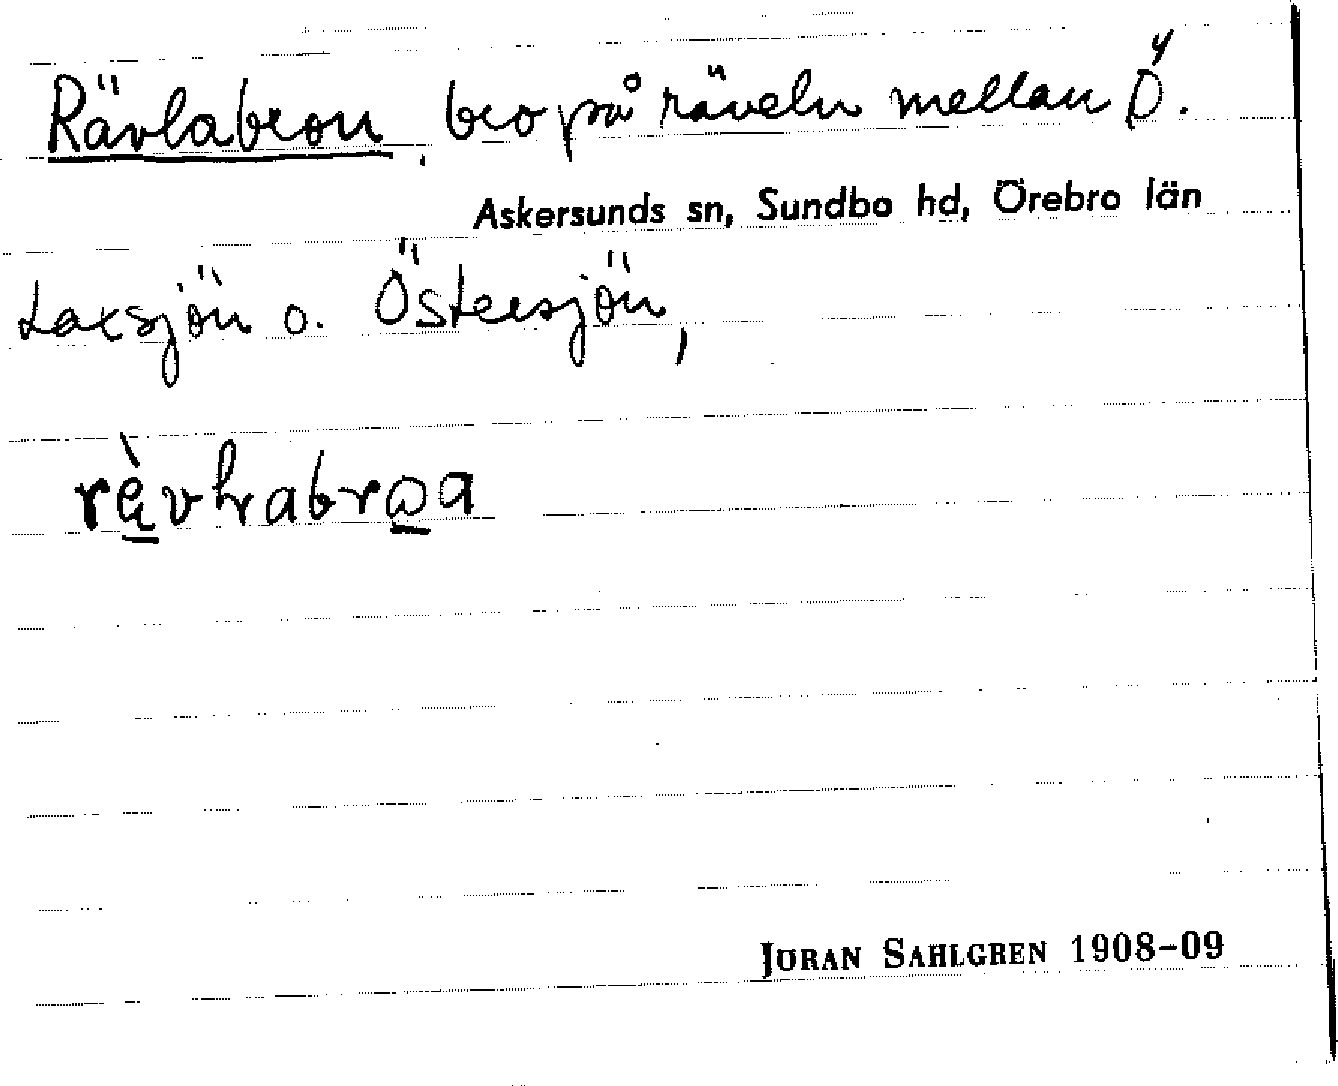 Rävlabron, bro på räveln mellan Ö.
Askersunds sn, Sundbo hd, Örebro län
Laxsjön o. Östersjön,
rèvlrabrωa
JÖRAN SAHLGREN 1908–09